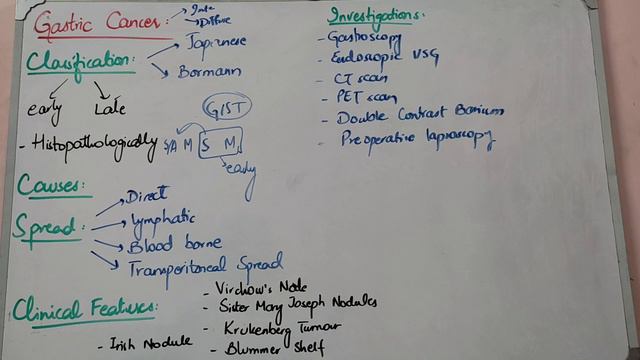 Gastric Cancer:
→ Diffuse
Classification:
→ Japanese
→ Bormann
early Late
GIST
- Histopathologically M S M
→ early
Causes:
Spread:
→ Direct
→ Lymphatic
→ Blood borne
→ Transperitoneal Spread
Clinical Features:
- Virchow's Node
- Sister Mary Joseph Nodules
- Krukenberg Tumour
- Irish Nodule
- Blummer Shelf
Investigations:
- Gastroscopy
- Endoscopic USG
- CT scan
- PET scan
- Double Contrast Barium
- Preoperative laproscopy